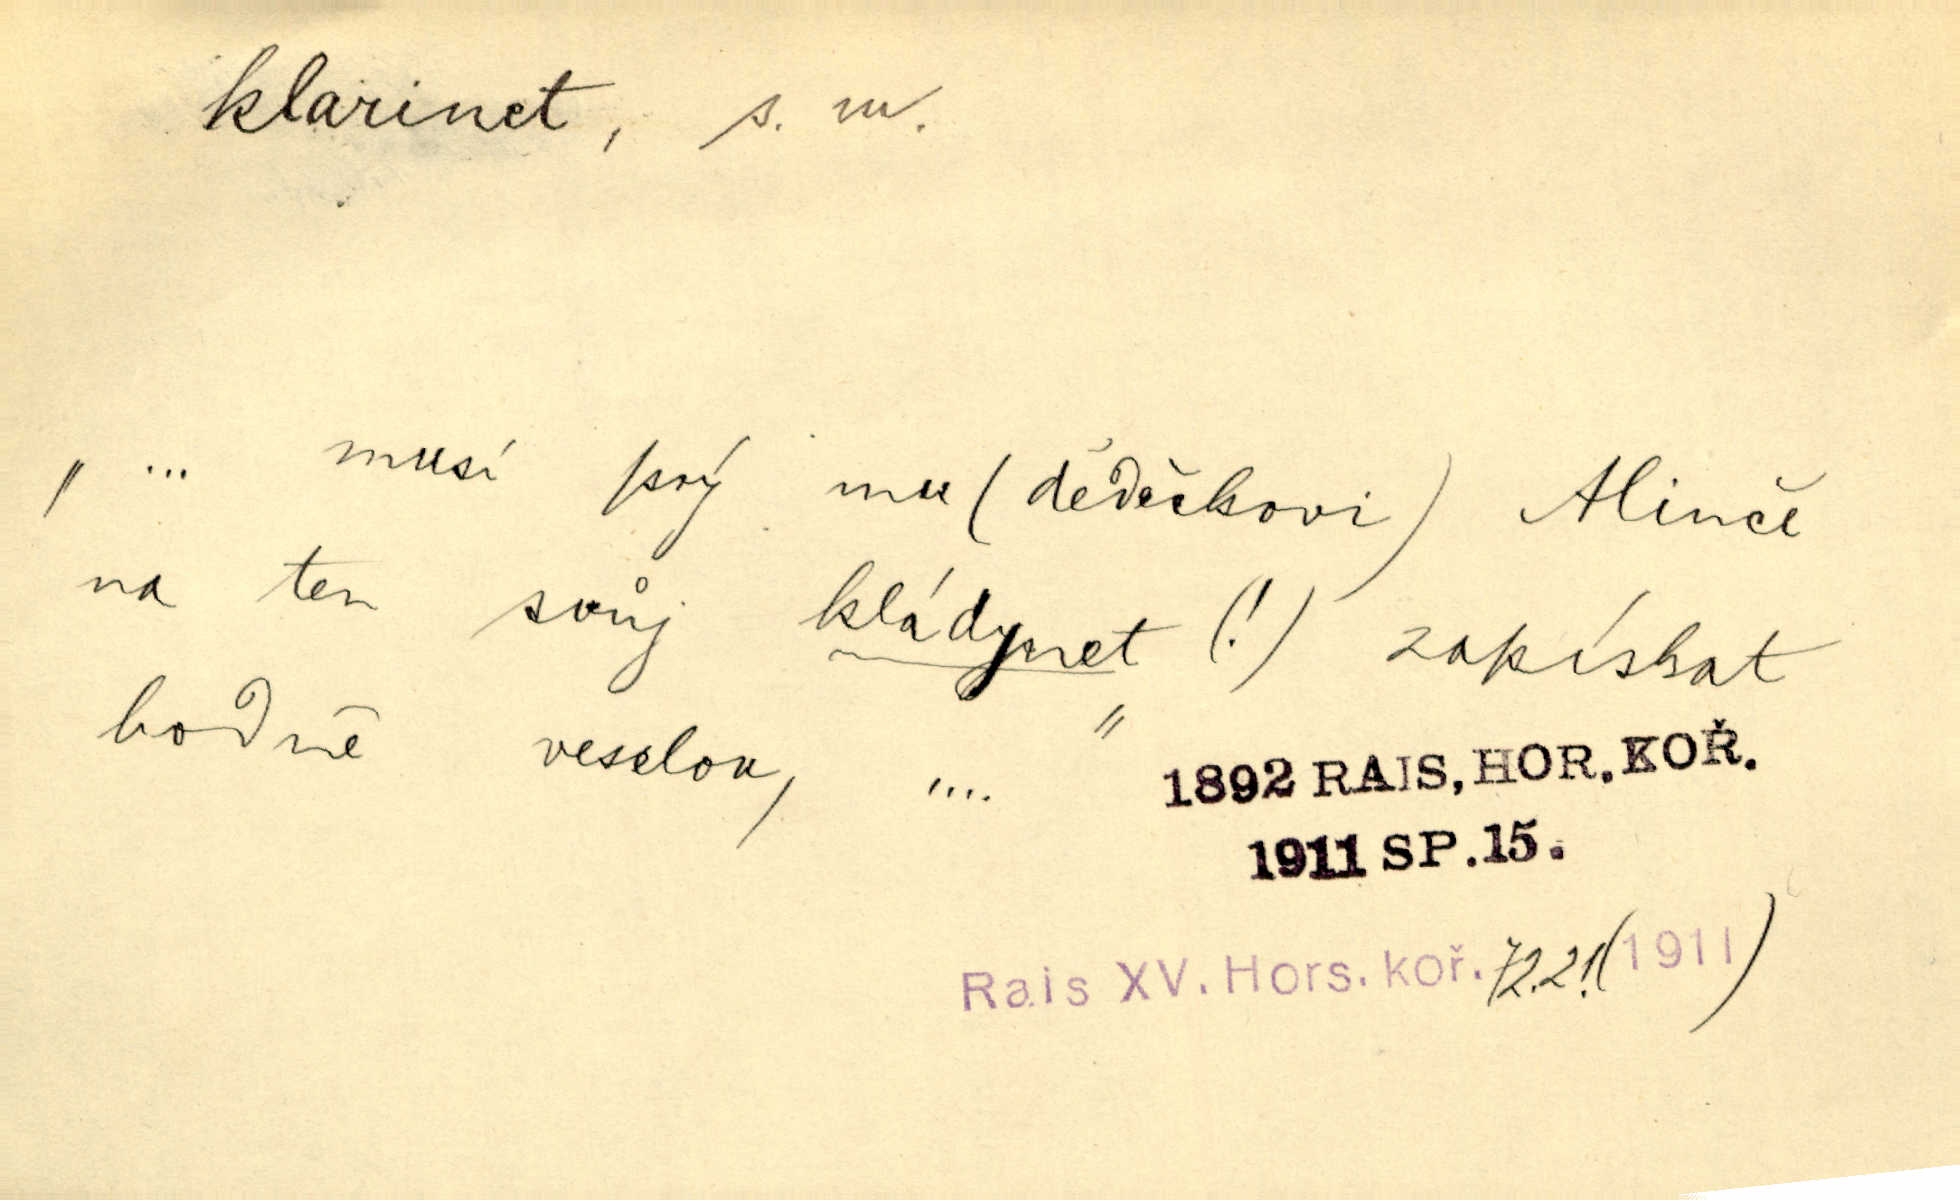 klarinet, s. m.
„... musí prý mu (dědečkovi) Alinče
na ten svůj kládynet (!) zapískat
hodně veselou, ...."
1892 RAIS, HOR. KOŘ.
1911 SP. 15.
Rais XV. Hors. koř. 72.21. (1911)